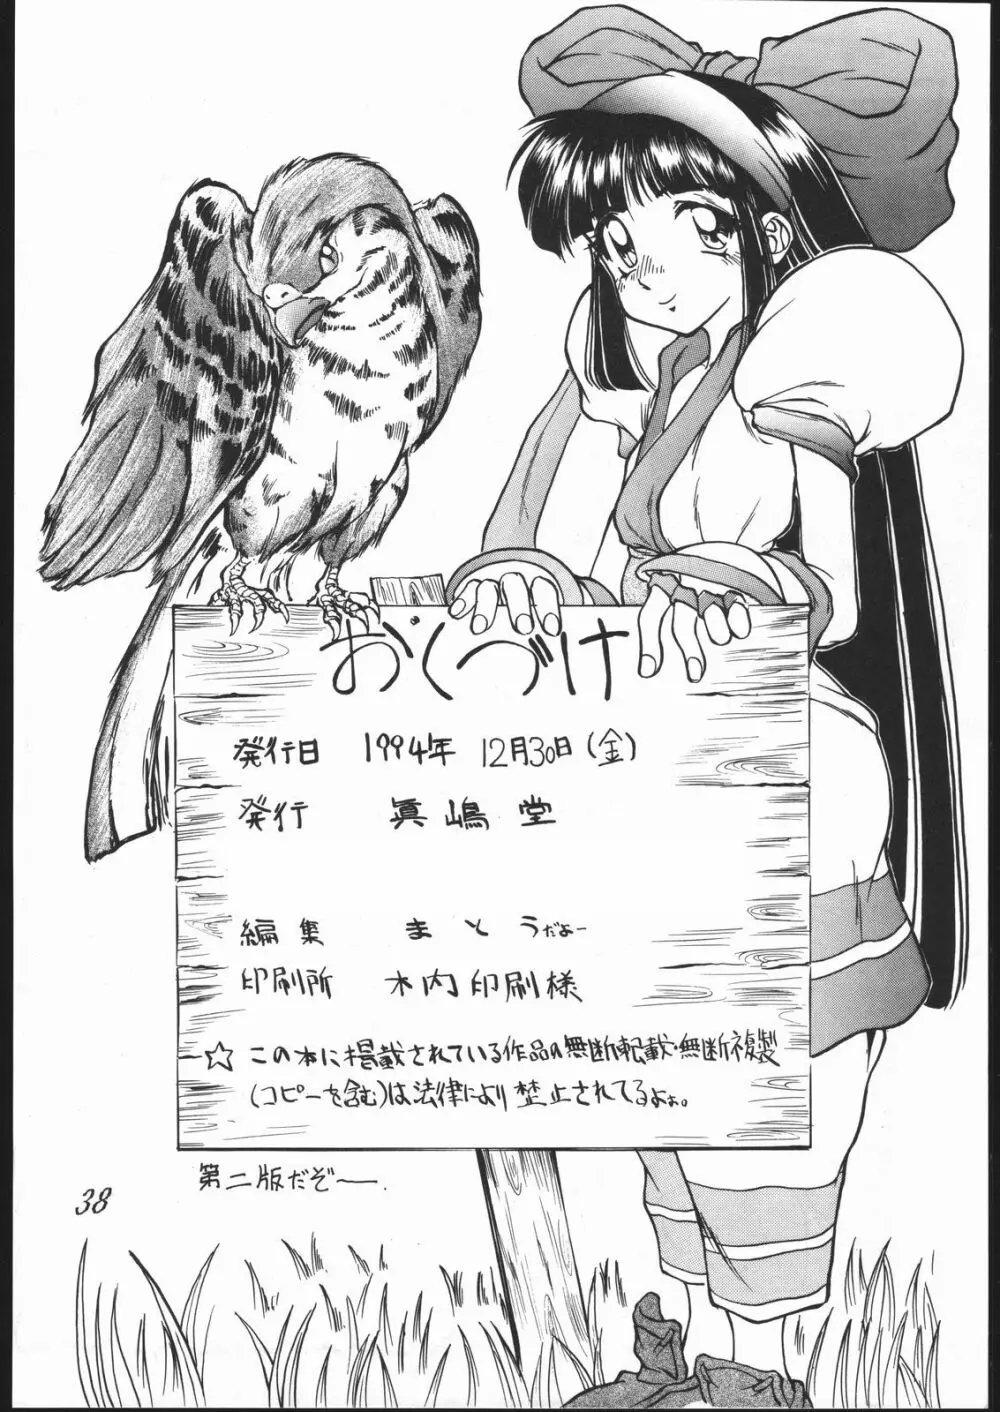 おくづけ
発行日 1994年 12月30日(金)
発行 眞嶋堂
編集 まとうだよー
印刷所 木内印刷様
☆この本に掲載されている作品の無断転載・無断複製
(コピーを含む)は法律により禁止されてるよぉ。
第二版だぞー.
38